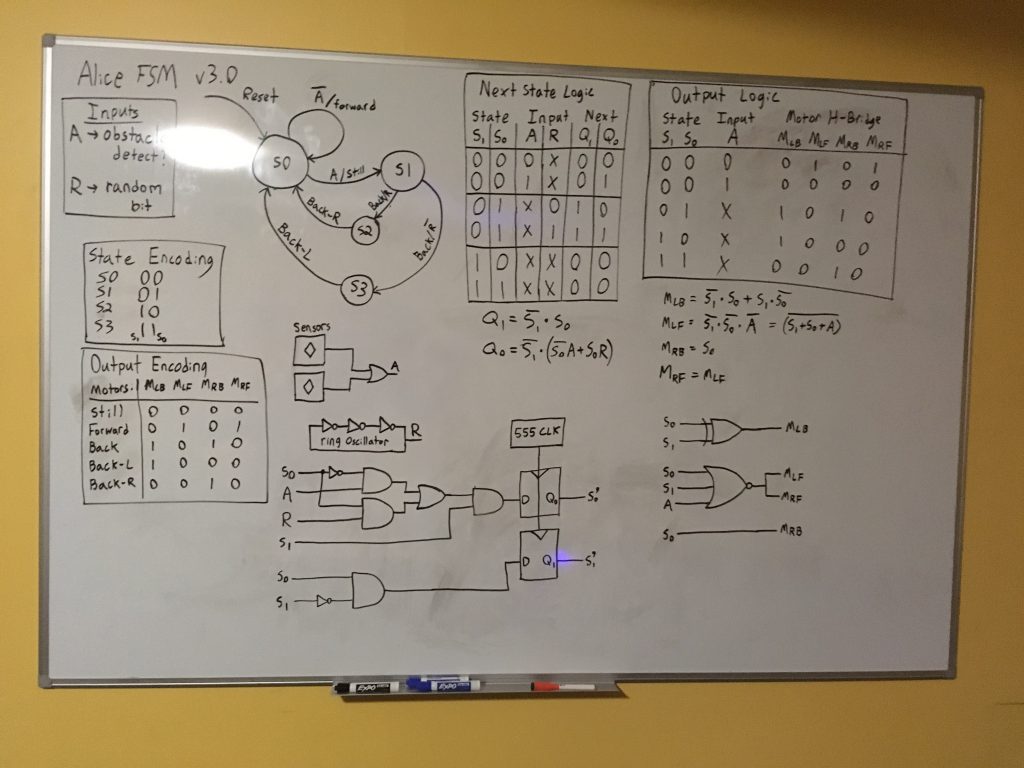 Alice FSM v3.0
Inputs
A → obstacle
detect?
R → random
bit
Reset
A̅/forward
S0
A/Still
S1
Back/R
S2
Back-R
Back-L
S3
State Encoding
S0 00
S1 01
S2 10
S3 11
S₁ S₀
Output Encoding
Motors: M_LB M_LF M_RB M_RF
Still 0 0 0 0
Forward 0 1 0 1
Back 1 0 1 0
Back-L 1 0 0 0
Back-R 0 0 1 0
Next State Logic
State Input Next
S₁ S₀ A R Q₁ Q₀
0 0 0 X 0 0
0 0 1 X 0 1
0 1 X 0 1 0
0 1 X 1 1 1
1 0 X X 0 0
1 1 X X 0 0
Q₁ = S̅₁ · S₀
Q₀ = S̅₁ · (S̅₀A + S₀R)
Output Logic
State Input Motor H-Bridge
S₁ S₀ A M_LB M_LF M_RB M_RF
0 0 0 0 1 0 1
0 0 1 0 0 0 0
0 1 X 1 0 1 0
1 0 X 1 0 0 0
1 1 X 0 0 1 0
M_LB = S̅₁ · S₀ + S₁ · S̅₀
M_LF = S̅₁ · S̅₀ · A̅ = (S₁+S₀+A)̅
M_RB = S₀
M_RF = M_LF
Sensors
A
ring Oscillator
R
555 CLK
S₀
A
R
S₁
D Q₀
S₀'
S₀
S₁
D Q₁
S₁'
S₀
S₁
M_LB
S₀
S₁
A
M_LF
M_RF
S₀
M_RB
EXPO
EXPO